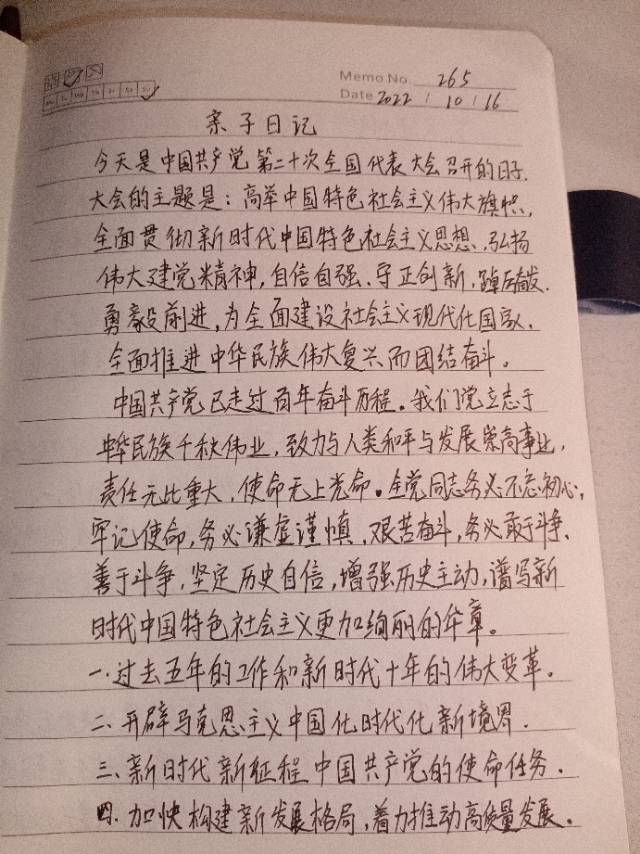 Memo No. 265
Mo Tu We Th Fr Sa Su
Date 2022 / 10 / 16
亲子日记
今天是中国共产党第二十次全国代表大会召开的日子.
大会的主题是：高举中国特色社会主义伟大旗帜,
全面贯彻新时代中国特色社会主义思想、弘扬
伟大建党精神,自信自强、守正创新,踔厉奋发、
勇毅前进,为全面建设社会主义现代化国家、
全面推进中华民族伟大复兴而团结奋斗。
中国共产党已走过百年奋斗历程。我们党立志于
中华民族千秋伟业,致力与人类和平与发展崇高事业,
责任无比重大,使命无上光命。全党同志务必不忘初心,
牢记使命,务必谦虚谨慎、艰苦奋斗,务必敢于斗争、
善于斗争,坚定历史自信,增强历史主动,谱写新
时代中国特色社会主义更加绚丽的华章。
一.过去五年的工作和新时代十年的伟大变革.
二.开辟马克思主义中国化时代化新境界.
三.新时代新征程中国共产党的使命任务.
四.加快构建新发展格局,着力推动高质量发展.